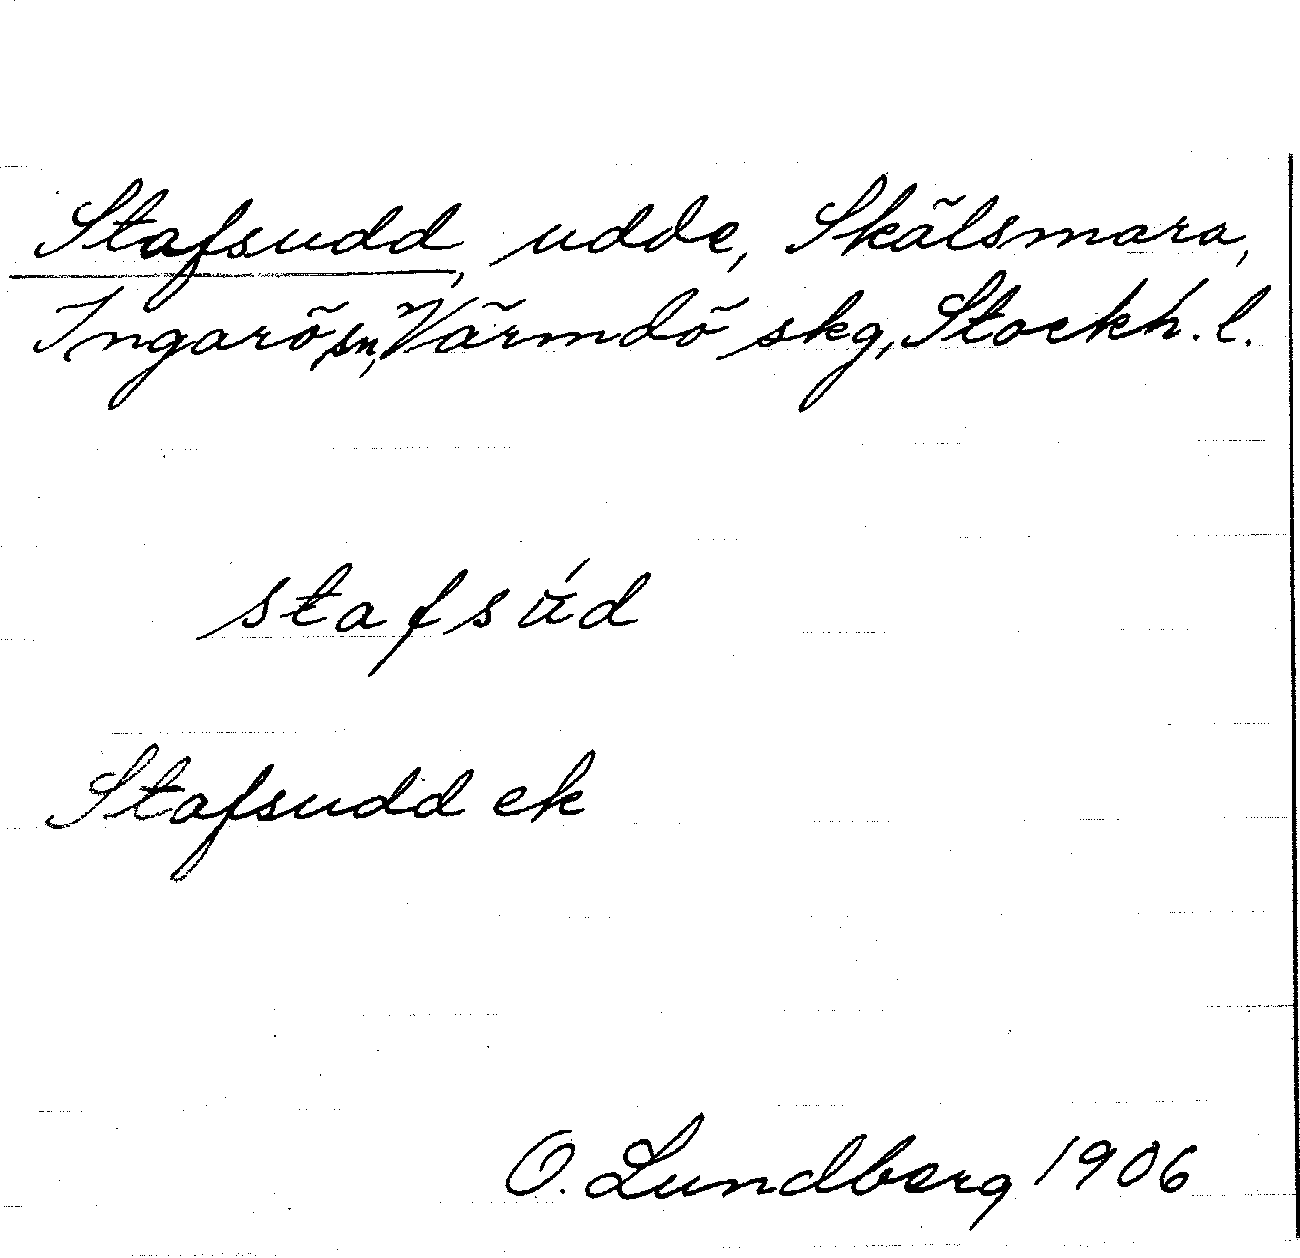 Stafsudd, udde, Skälsmara,
Ingarö sn, Värmdö skg, Stockh. l.
stafsúd
Stafsudd ek
O. Lundberg 1906